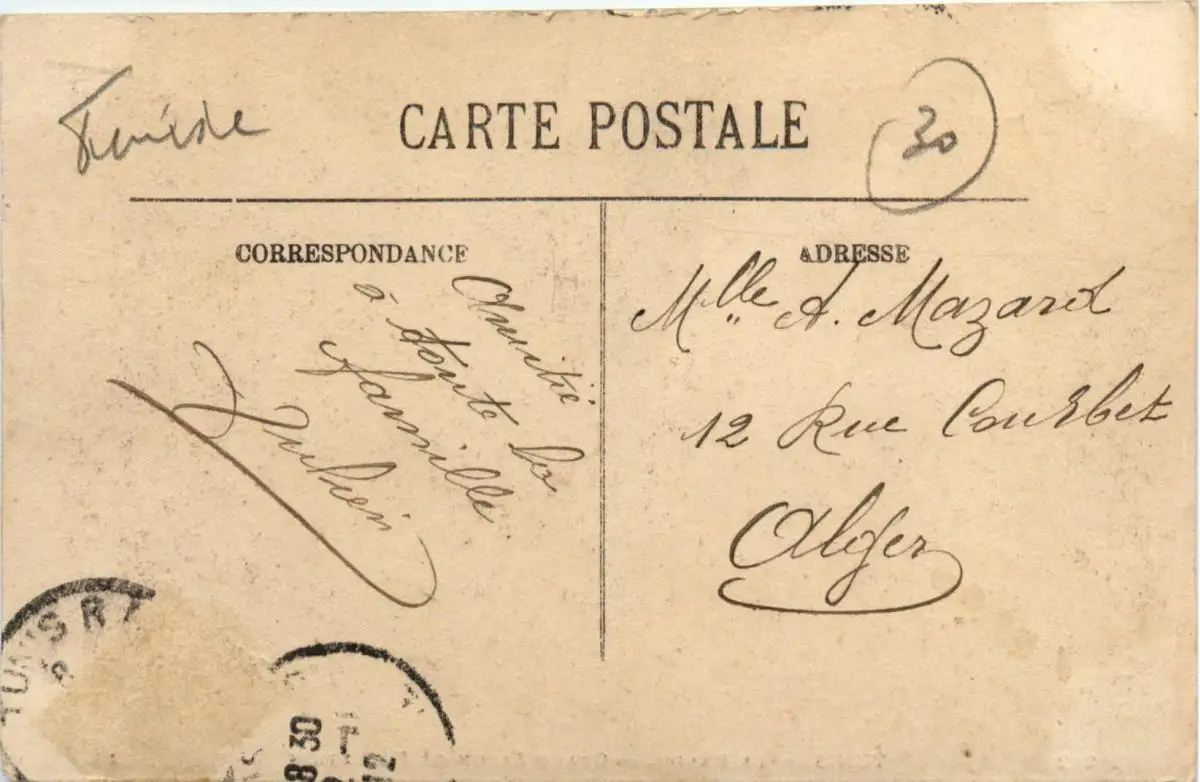 Tunisie
CARTE POSTALE
30
CORRESPONDANCE
Amitié
à toute la
famille
Julien
ADRESSE
Mlle A. Mazard
12 Rue Courbet
Alger
TUNIS R
8 30
12